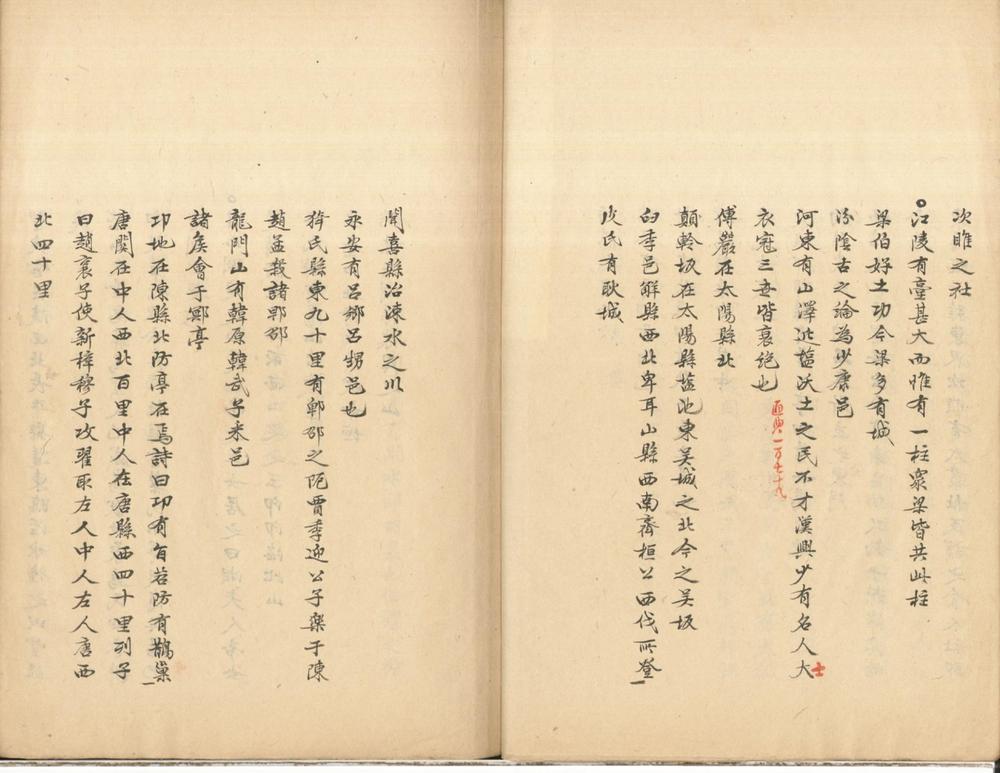 次睢之社
江陵有臺甚大而惟有一柱衆梁皆共此柱
梁伯好土功今梁多有城
汾陰古之論為少康邑
河東有山澤近塩沃土之民不才漢興少有名人大
士
衣冠三世皆衰絶也
傅巖在太陽縣北
顛軨坂在太陽縣塩池東吴城之北今之吴坂
臼季邑解縣西北卑耳山縣西南齊桓公西伐所登
皮氏有耿城
聞喜縣治涑水之川
永安有呂鄉呂甥邑也
猗氏縣東九十里有郫邵之阨賈季迎公子樂于陳
趙孟殺諸郫邵
龍門山有韓原韓武子采邑
諸侯會于鄍亭
邛地在陳縣北防亭在焉詩曰邛有旨苕防有鵲巢
唐關在中人西北百里中人在唐縣西四十里列子
曰趙襄子使新穉穆子攻翟取左人中人左人唐西
北四十里